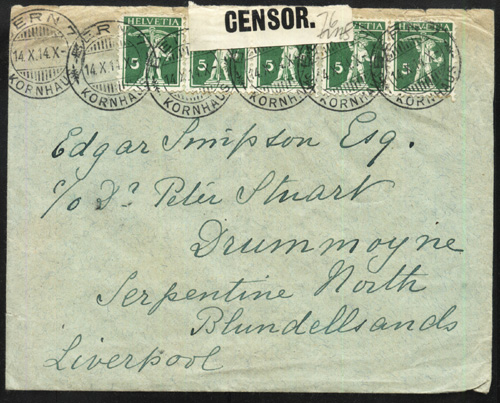 CENSOR.
76
BERN 7
14.X.14.X-
KORNHAUS
14.X.1
KORNHAUS
HELVETIA
5
5
5
HELVETIA
5
HELVETIA
5
KORNHAUS
KORNHAUS
KORNHAUS
Edgar Simpson Esq.
c/o Dr. Peter Stuart
Drummoyne
Serpentine North
Blundellsands
Liverpool